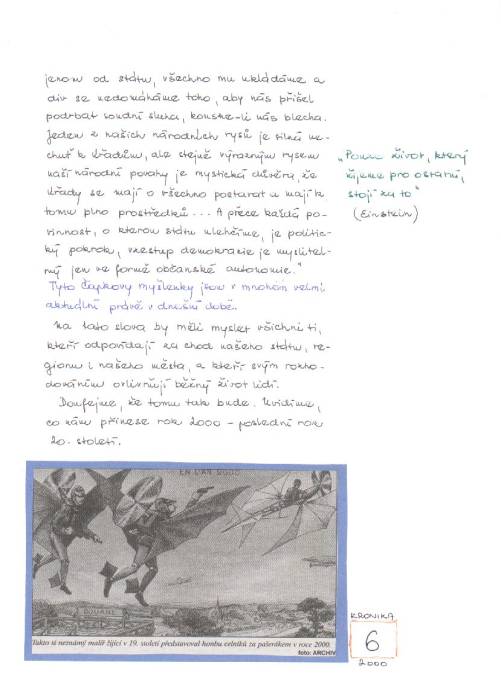 jenom od státu, všechno mu ukládáme a
div se nedomáháme toho, aby nás přišel
podrbat soudní sluha, kousne-li nás blecha.
Jeden z našich národních rysů je silná ne-
chuť k úřadům, ale stejně výrazným rysem
naší národní povahy je mystická důvěra, že
úřady se mají o všechno postarat a mají k
tomu plno prostředků... A přece každá po-
vinnost, o kterou státu ulehčíme, je politic-
ký pokrok, vzestup demokracie je myslitel-
ný jen ve formě občanské autonomie."
Tyto Čapkovy myšlenky jsou v mnohém velmi
aktuální právě v dnešní době.
Na tato slova by měli myslet všichni ti,
kteří odpovídají za chod našeho státu, re-
gionu i našeho města, a kteří svým rozho-
dováním ovlivňují běžný život lidí.
Doufejme, že tomu tak bude. Uvidíme,
co nám přinese rok 2000 - poslední rok
20. století.
„Pouze život, který
žijeme pro ostatní,
stojí za to"
(Einstein)
EN L'AN 2000
DOUANE
Takto si neznámý malíř žijící v 19. století představoval honbu celníků za pašerákem v roce 2000.
foto: ARCHIV
KRONIKA
6
2000